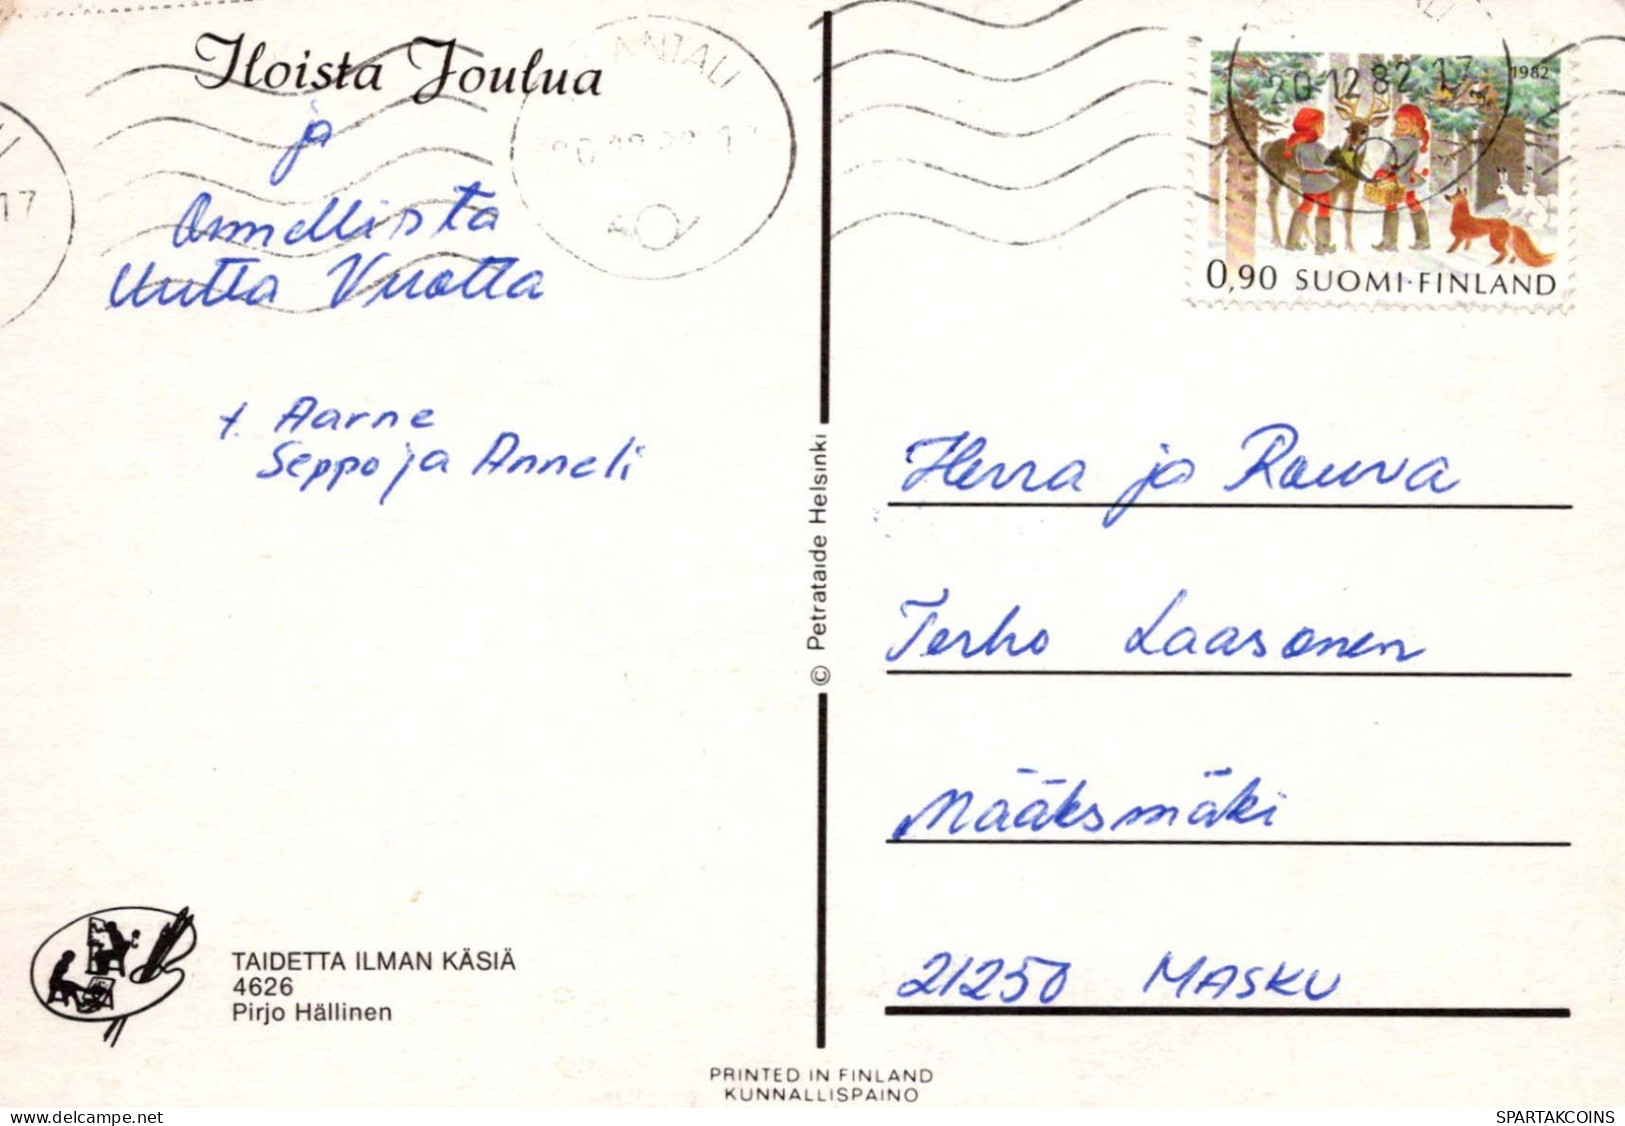 Iloista Joulua
ja
Onnellista
Uutta Vuotta
t. Aarne
Seppo ja Anneli
TAIDETTA ILMAN KÄSIÄ
4626
Pirjo Hällinen
© Petrataide Helsinki
PRINTED IN FINLAND
KUNNALLISPAINO
20.12.82.17
1982
0,90 SUOMI·FINLAND
Herra ja Rouva
Terho Laasonen
Määksmäki
21250 MASKU
17
SPARTAKCOINS
delcampe.net